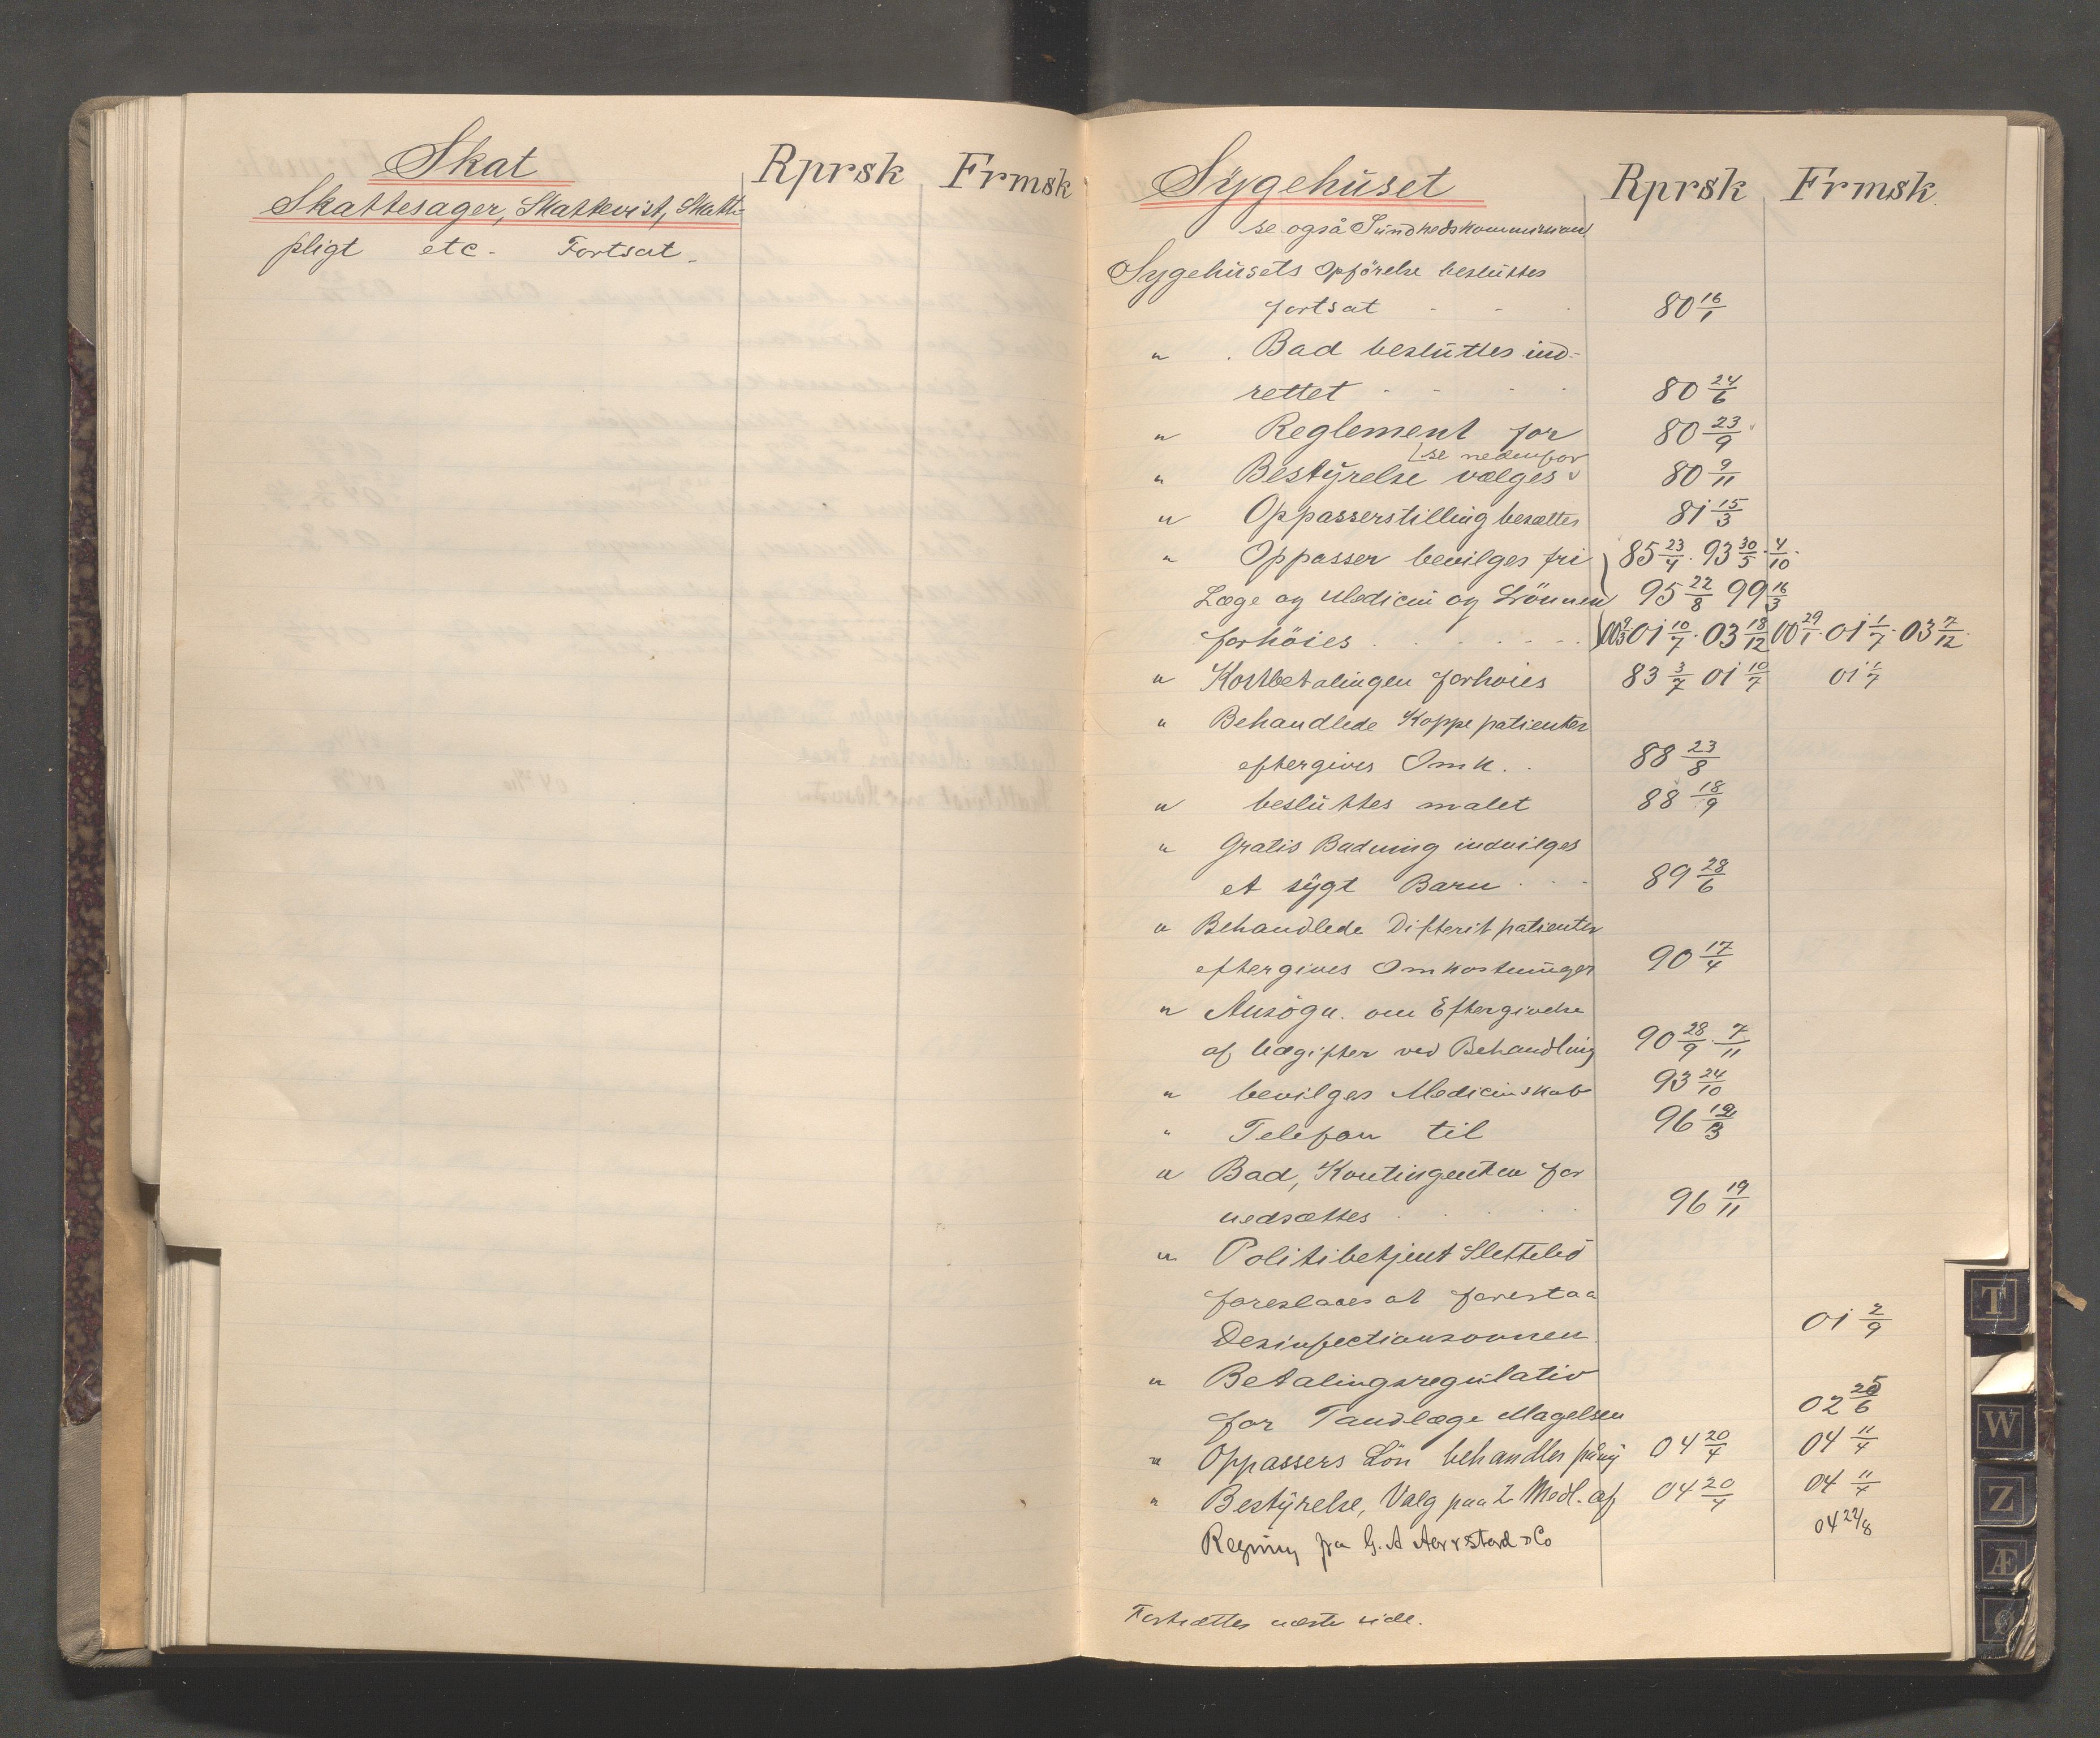 Skat
Rprsk Frmsk
Skattesager, Skattevist, Skatte-
pligt etc. Fortsat.
Sygehuset
Rprsk Frmsk.
se også Sundhedskommission
Sygehusets Opförelse besluttes
fortsat 80 16/1
" Bad besluttes ind-
rettet 80 24/6
" Reglement for 80 23/9
se nedenfor
" Bestyrelse vælges 80 9/11
" Oppasserstilling besættes 81 15/3
" Oppasser bevilges fri 85 23/4 . 93 30/5 . 4/10
Læge og Medicin og Lönnen 95 22/8 99 16/3
forhöies 00 9/3 01 10/7 . 03 18/12 00 29/1 . 01 1/7 . 03 7/12
" Kostbetalingen forhøies 83 3/7 01 10/7 01 1/7
" Behandlede Koppepatienter
eftergives Omk. 88 23/8
" besluttes malet 88 18/9
" Gratis Badning indvilges
et sygt Barn 89 28/6
" Behandlede Difteritpatienter
eftergives Omkostninger 90 17/4
" Ansögn. om Eftergivelse
af Udgifter ved Behandling 90 28/9 . 7/11
" bevilges Medicinskab 93 24/10
" Telefon til 96
" Bad, Kontingenten for
nedsættes 96 19/11
" Politibetjent Slettebö
foreslaaes at forestaa
Desinfectionsovnen 01 2/9
" Betalingsregulativ
for Tandlæge Magelsen 02
" Oppassers Lön behandles påny 04 20/4 04 11/4
" Bestyrelse, Valg paa 2 Medl. af 04 20/4 04 11/4
Regning fra G. A & Co 04 22/8
Fortsættes næste side.
T
W
Z
Æ
Ø